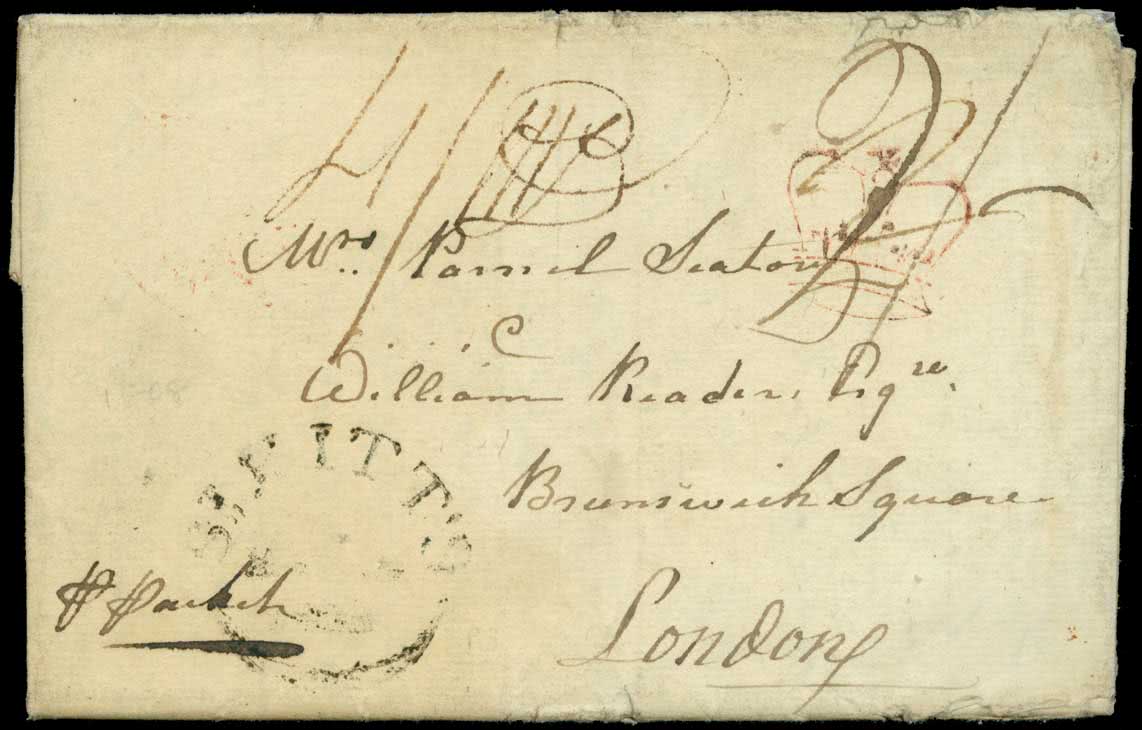 4/
2/
Mrs. Parnel Seaton
C
William Reader, Esqre.
Brunswick Square
London
ST. KITT'S
P Packet